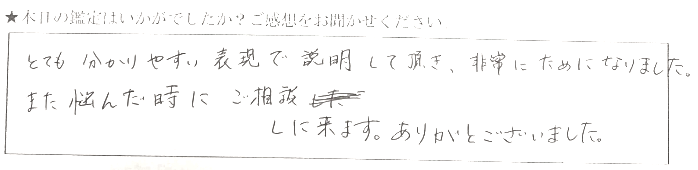 ★本日の鑑定はいかがでしたか？ご感想をお聞かせください
とても分かりやすい表現で説明して頂き、非常にためになりました。
また悩んだ時にご相談
しに来ます。ありがとございました。